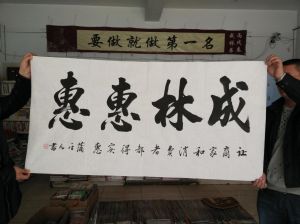 要做就做第一名
惠惠林成
让商家和消费者都得实惠